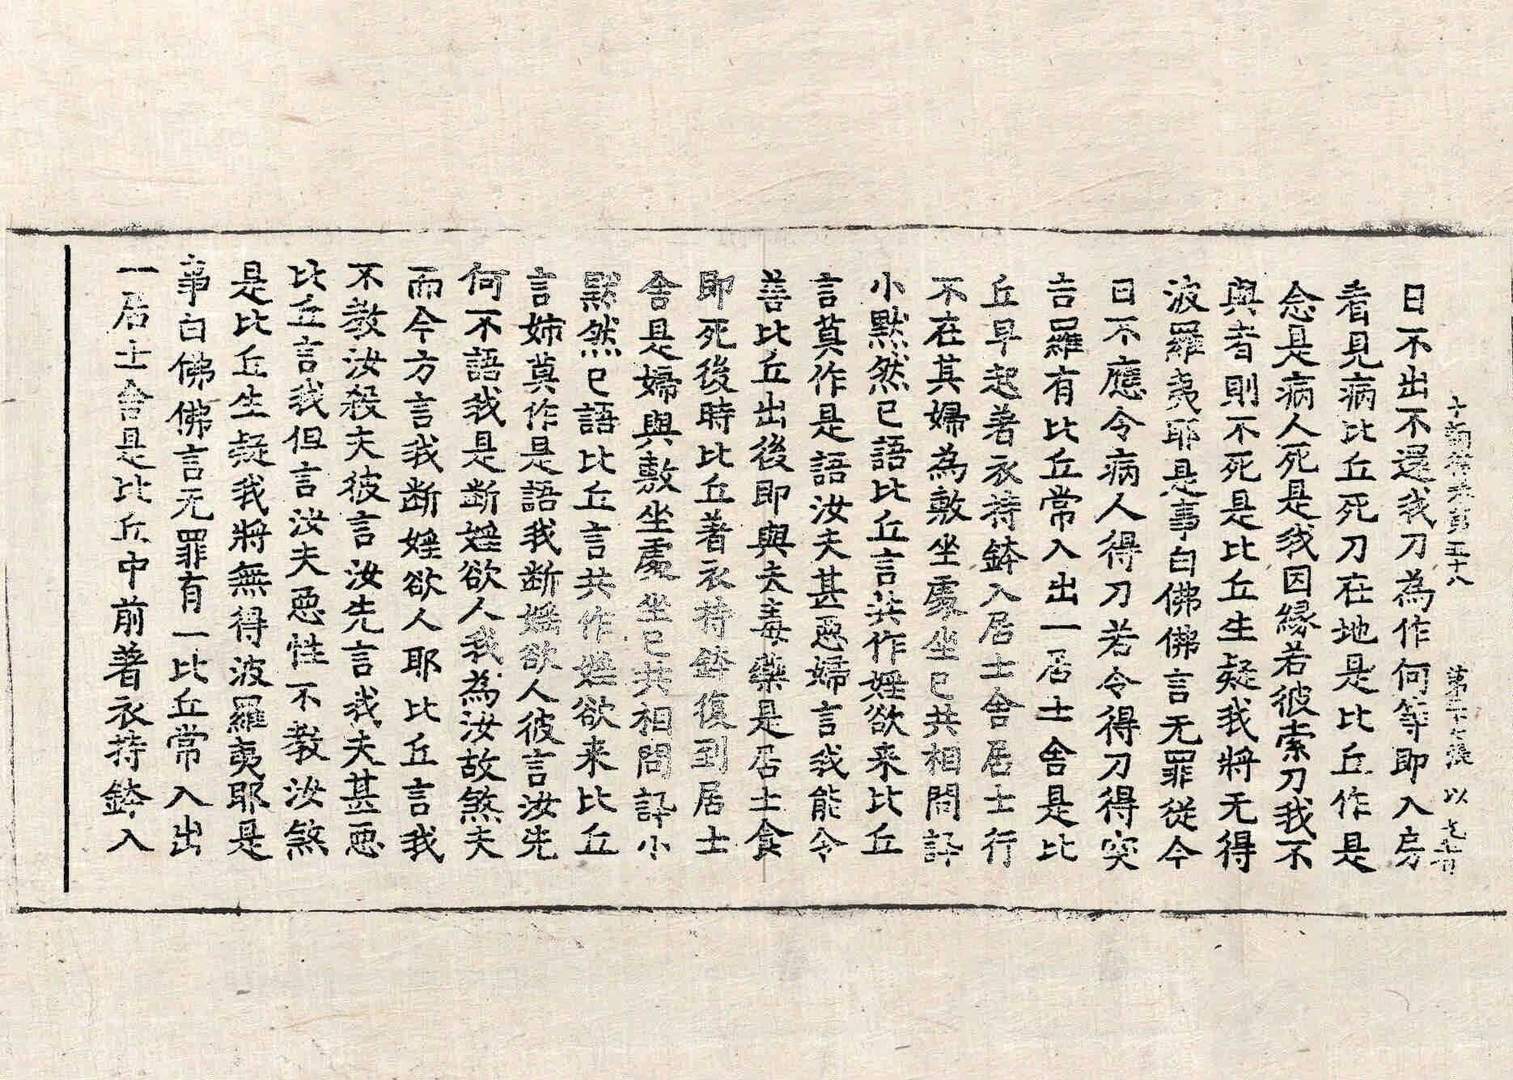 十誦律卷第五十八 第二十七張 以
日不出不還我刀為作何等即入房
看見病比丘死刀在地是比丘作是
念是病人死是我因緣若彼索刀我不
與者則不死是比丘生疑我將无得
波羅夷耶是事白佛佛言无罪從今
日不應令病人得刀若令得刀得突
吉羅有比丘常入出一居士舍是比
丘早起著衣持鉢入居士舍居士行
不在其婦為敷坐處坐已共相問訊
小默然已語比丘言共作婬欲来比丘
言莫作是語汝夫甚惡婦言我能令
善比丘出後即與夫毒藥是居士食
即死後時比丘著衣持鉢復到居士
舍是婦與敷坐處坐已共相問訊小
默然已語比丘言共作婬欲来比丘
言姊莫作是語我断婬欲人彼言汝先
何不語我是断婬欲人我為汝故煞夫
而今方言我断婬欲人耶比丘言我
不教汝殺夫彼言汝先言我夫甚惡
比丘言我但言汝夫惡性不教汝煞
是比丘生疑我將無得波羅夷耶是
事白佛佛言无罪有一比丘常入出
一居士舍是比丘中前著衣持鉢入